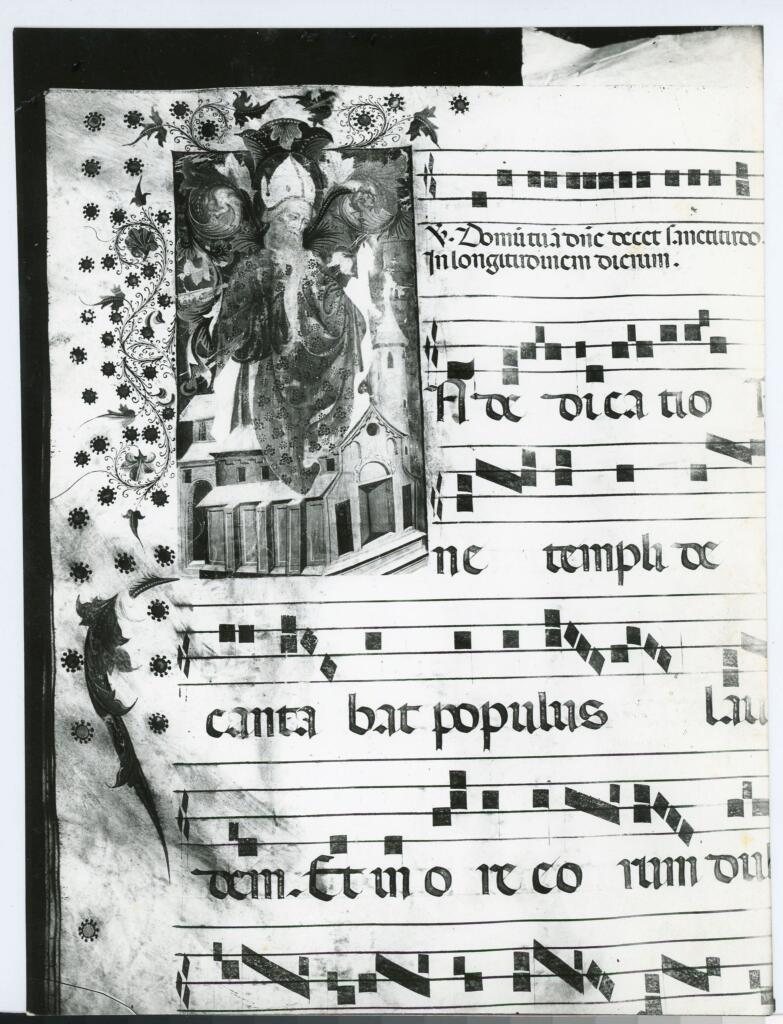 V. Domui tua dñe decet sanctitudo.
In longitudinem dierum.
A de dica tio
ne templi de
canta bat populus lau
dem. Et in o re co rum dul